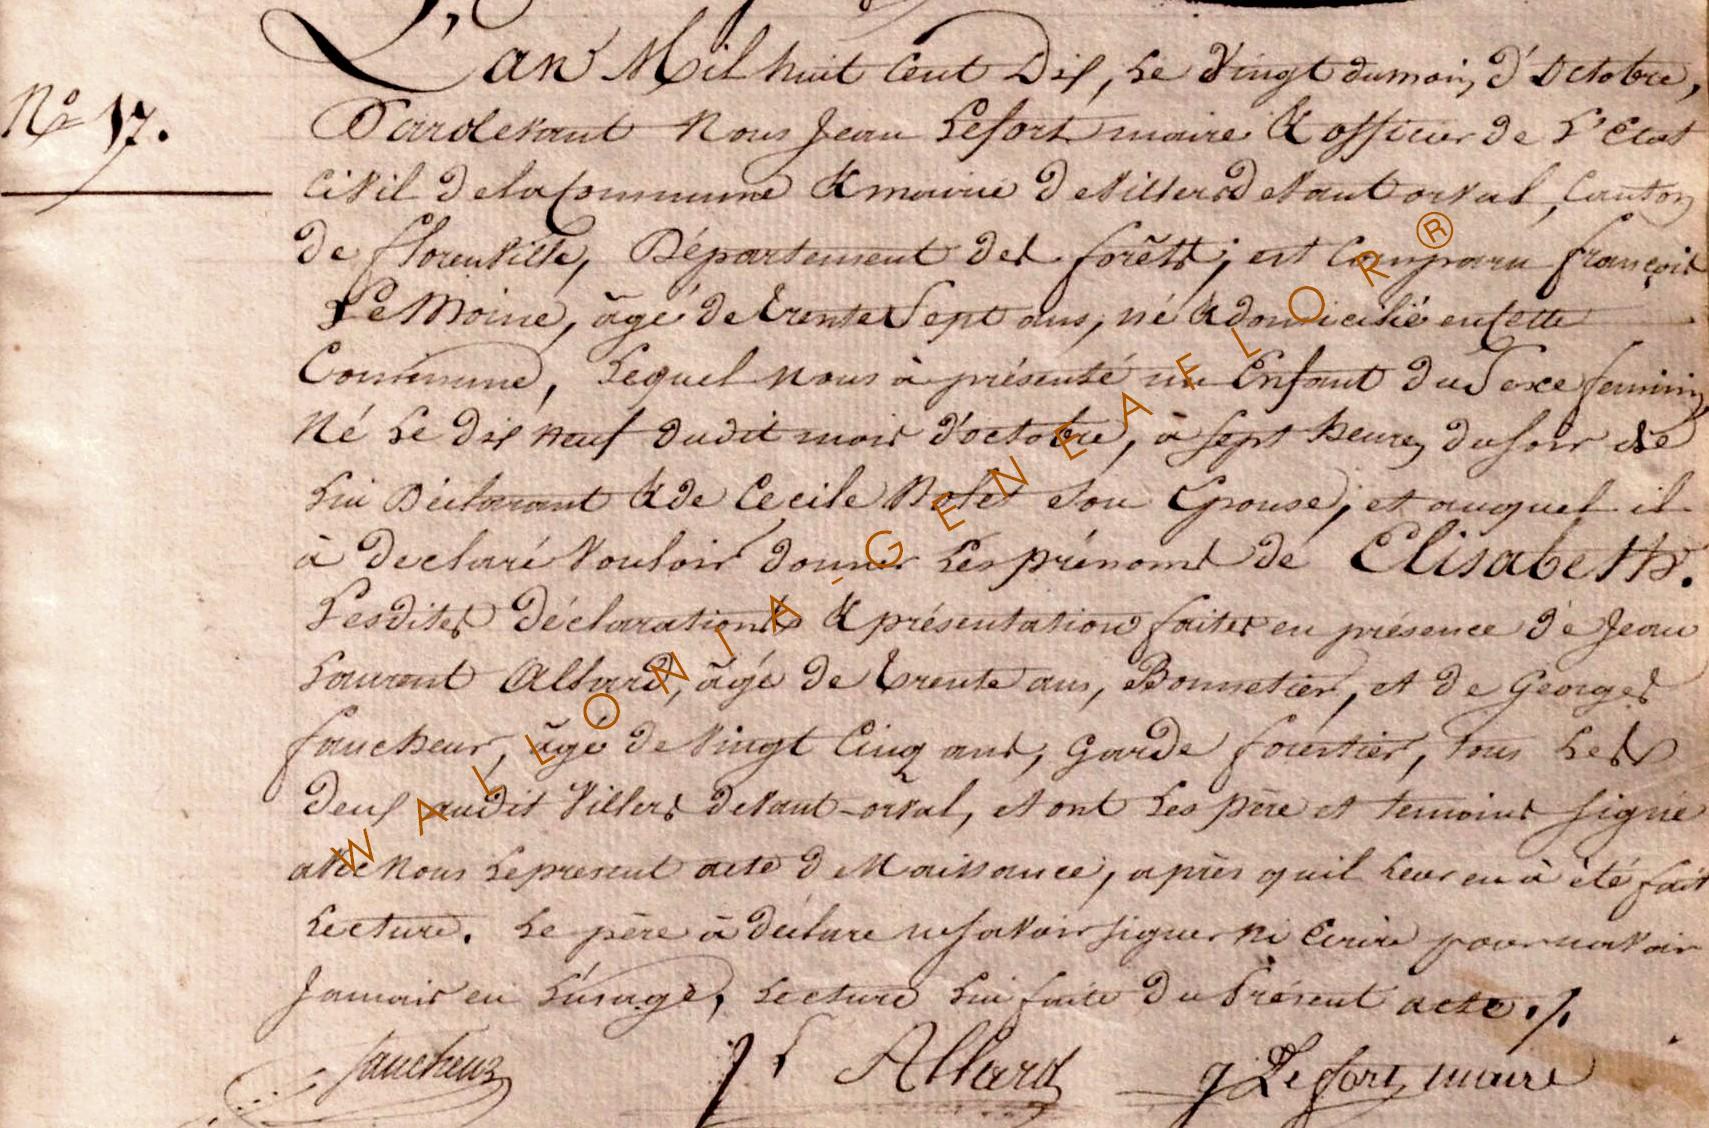 L'an Mil huit Cent Dix, Le Vingt du mois d'Octobre,
N.º 17.
Pardevant Nous Jean Lefort maire & officier de L'Etat
Civil de la Commune & mairie de Villers devant orval, Canton
de florenville, Département des forêts; est Comparu françois
Le Moine, âgé de trente Sept ans, né & domicilié en Cette
Commune, Lequel Nous à présenté un Enfant du Sexe feminin
Né Le dix neuf dudit mois d'octobre, à sept heures du soir de
Lui Déclarant & de Cecile son Epouse, et auquel il
à declaré Vouloir donner Les prénoms de Elisabeth.
Lesdites déclarations & présentation faites en présence de Jean
Laurent Allard, âgé de trente ans, Bonnetier, et de Georges
faucheur, âgé de Vingt Cinq ans, garde forestier, tous Les
deux audit Villers devant-orval, et ont Les père et temoins signé
avec Nous Le present acte de Naissance, après quil Leur en à été fait
Lecture. Le père à déclaré ne savoir signer ni Ecrire pour navoir
Jamais eu L'usage, Lecture Lui faite du Présent acte ./.
faucheur J L Allard g Lefort, maire
WALLONIA-GENEAFLOR®